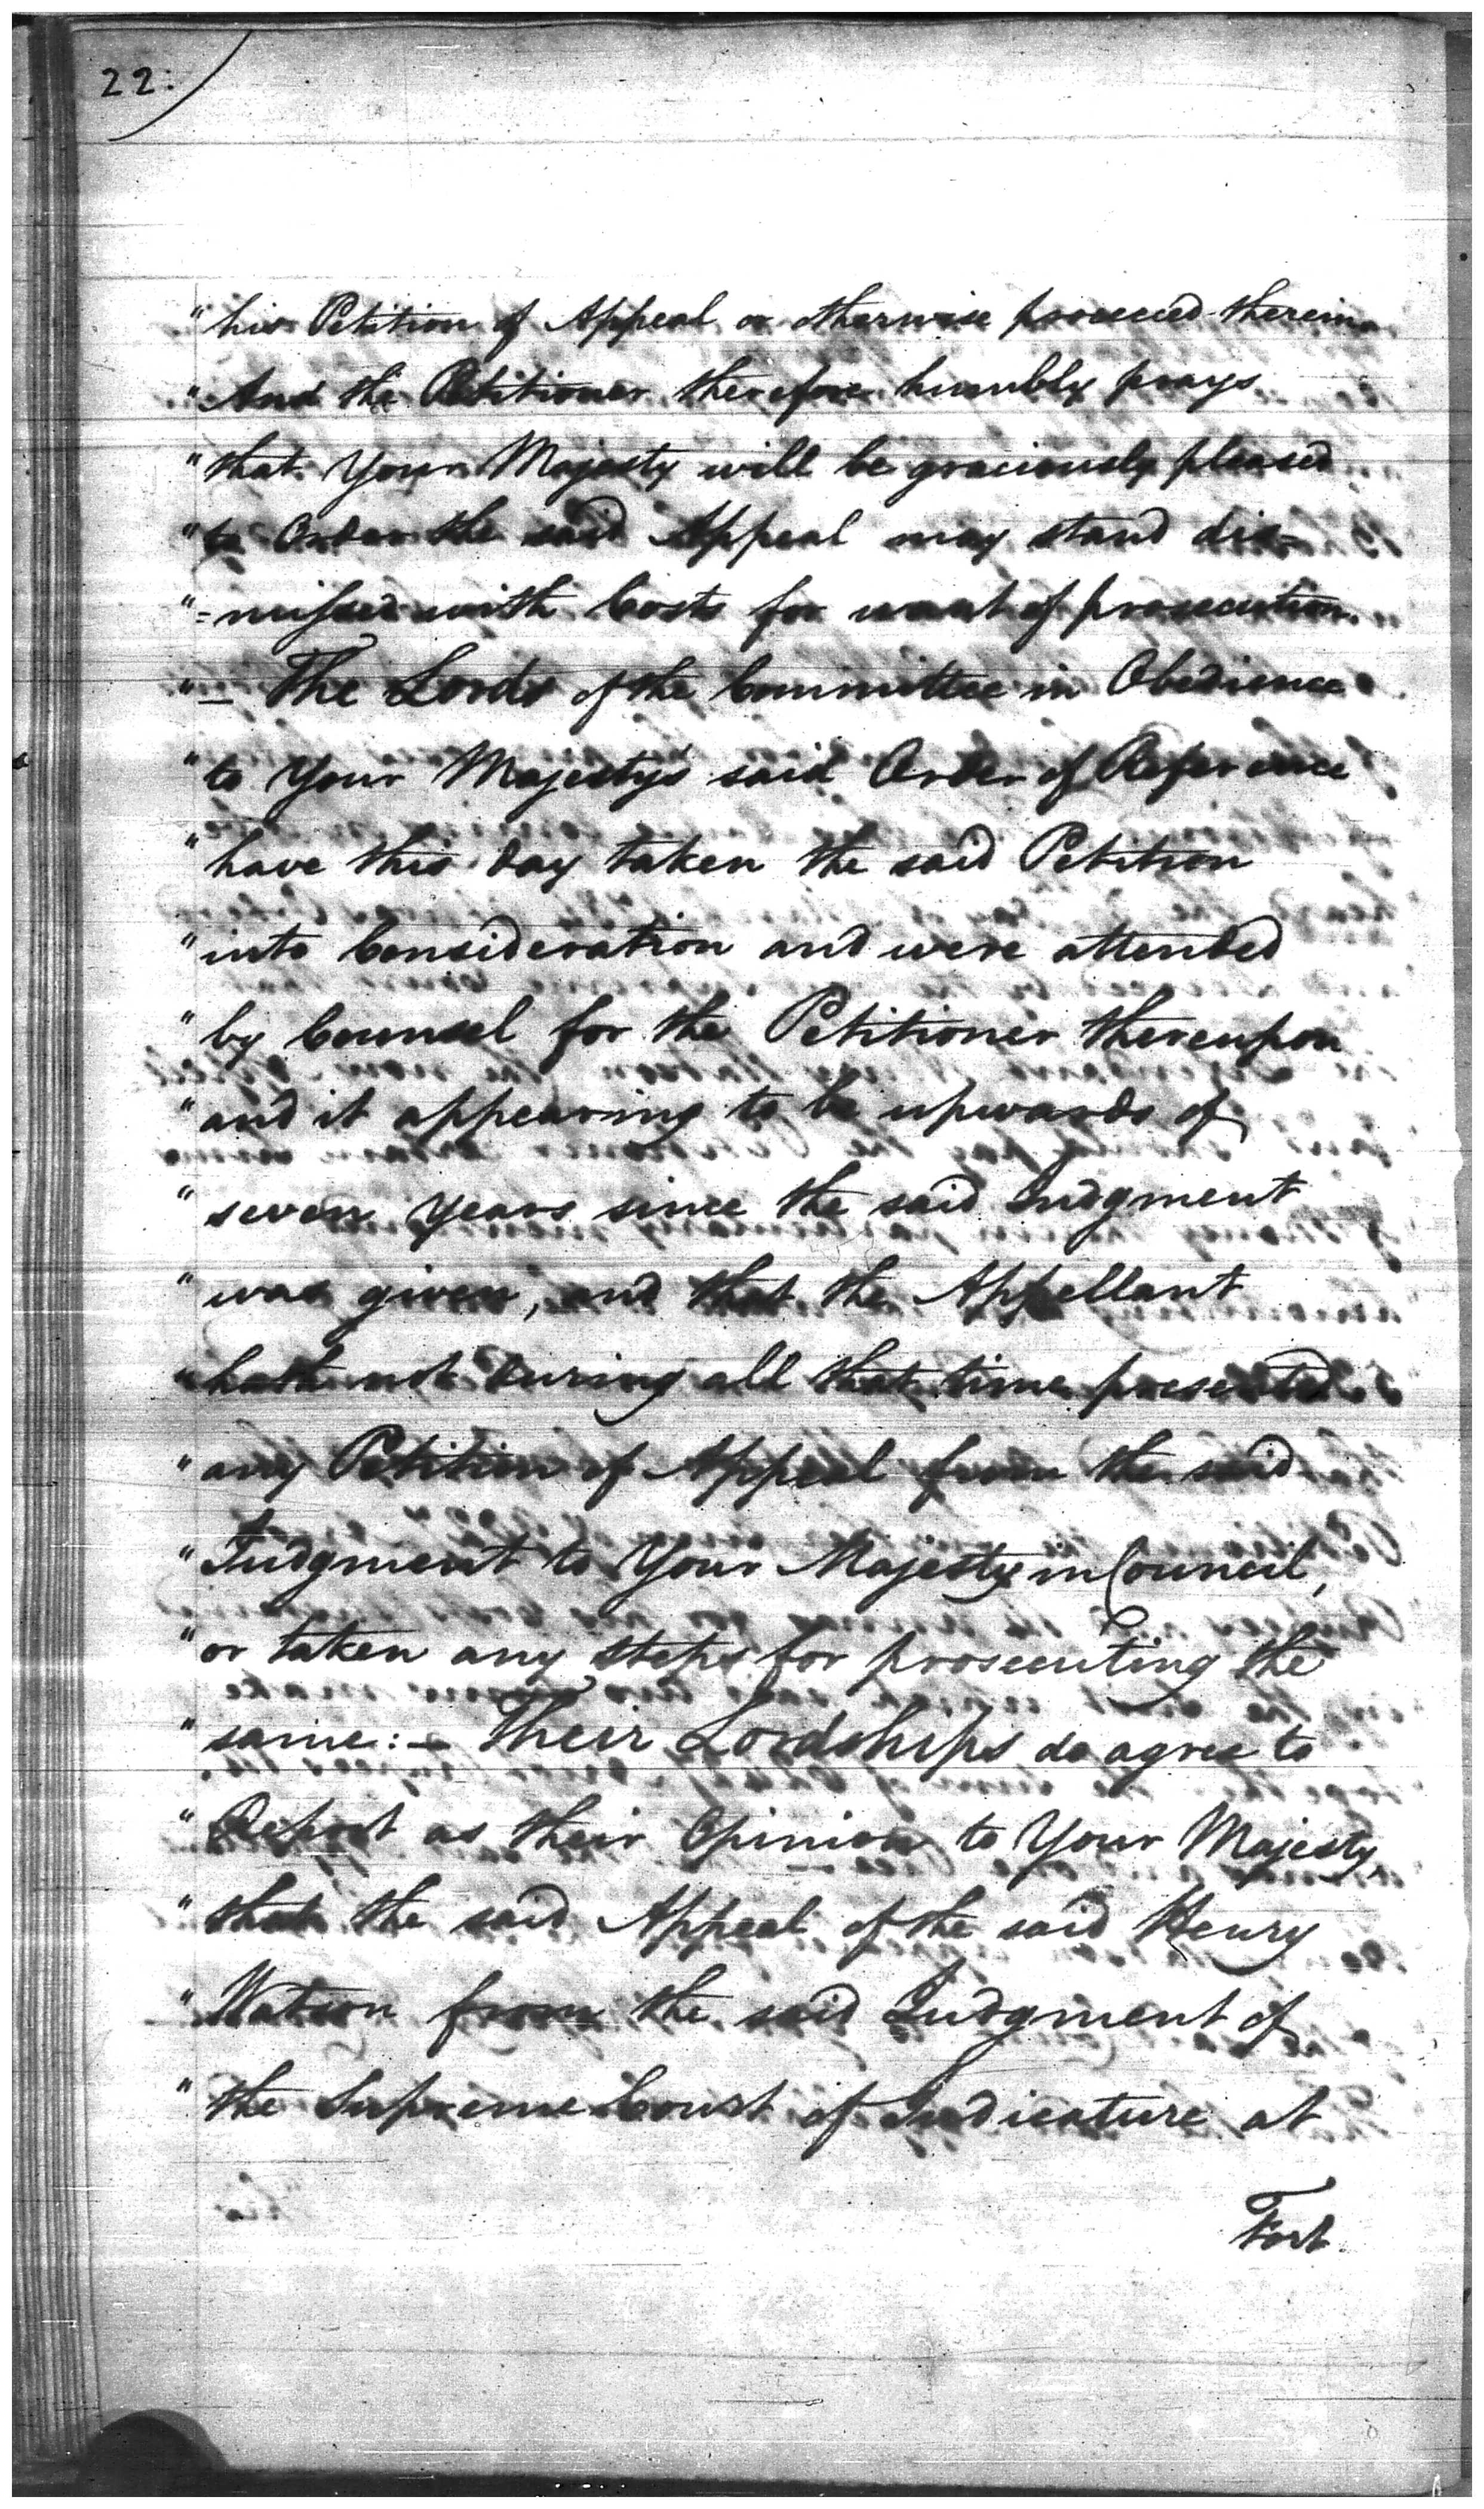 22.
" his Petition of Appeal or otherwise proceed therein
" And the Petitioner therefore humbly prays
" that Your Majesty will be graciously pleased
" to Order the said Appeal may stand dis=
" =missed with Costs for want of prosecution.
" – The Lords of the Committee in Obedience
" to Your Majestys said Order of Reference
" have this day taken the said Petition
" into Consideration and were attended
" by Counsel for the Petitioner thereupon
" and it appearing to be upwards of
" seven years since the said Judgment
" was given, and that the Appellant
" hath not during all that time presented
" any Petition of Appeal from the said
" Judgment to Your Majesty in Council,
" or taken any steps for prosecuting the
" same:– Their Lordships do agree to
" Report as their Opinion to Your Majesty,
" that the said Appeal of the said Henry
" Watson from the said Judgment of
" the Supreme Court of Judicature at
Fort